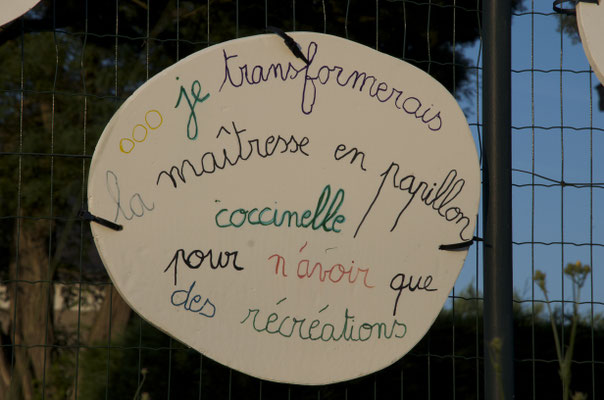 ooo je transformerais
la maîtresse en papillon/
coccinelle
pour n'avoir que
des récréations